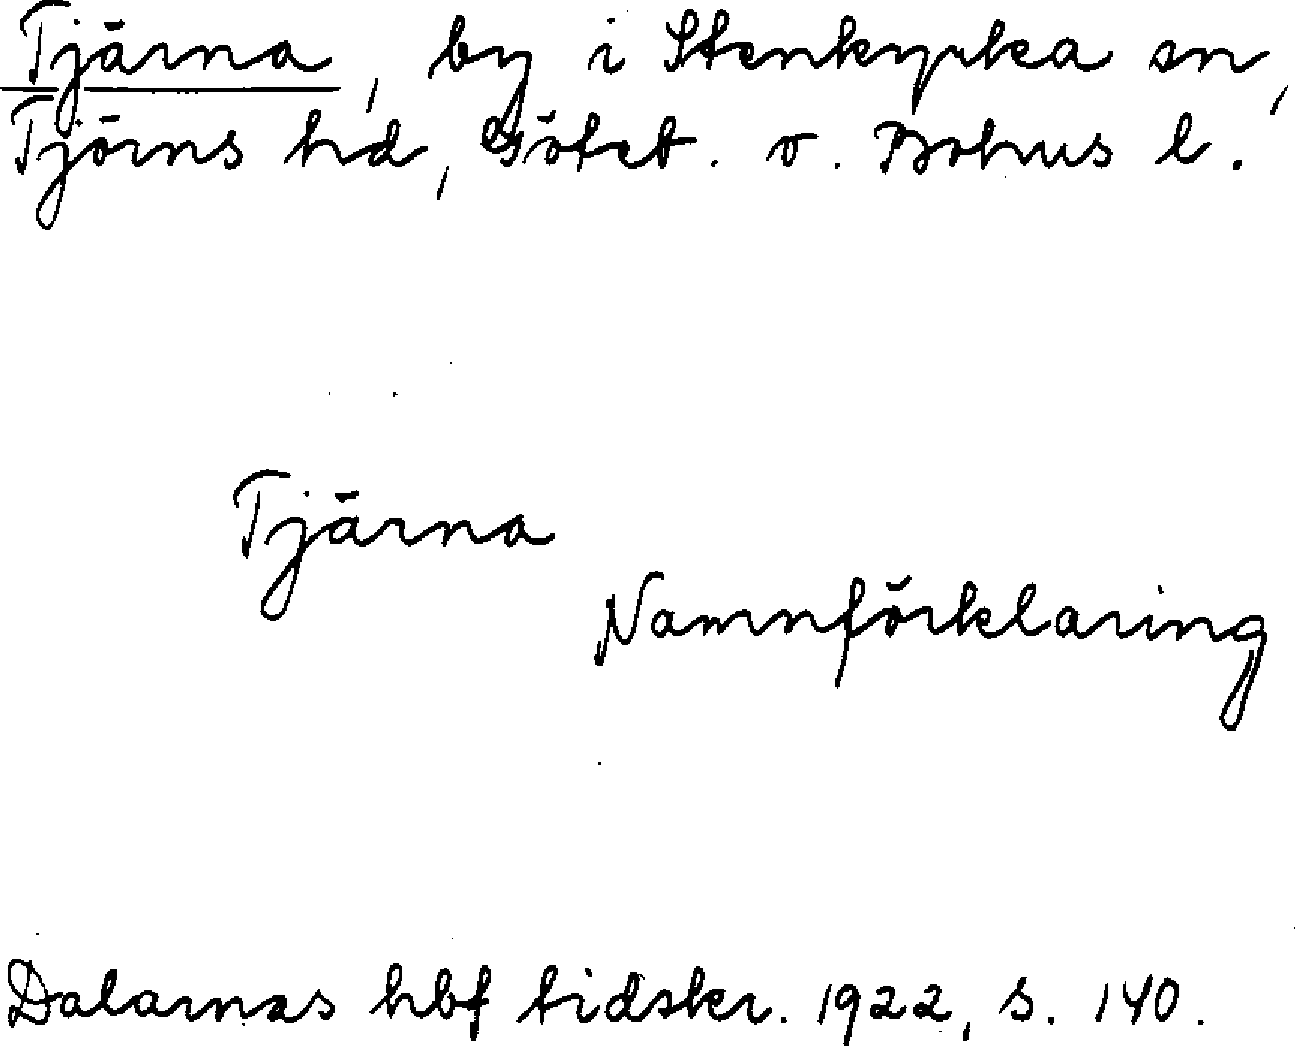 Tjärna, by i Stenkyrka sn,
Tjörns hd, Göteb. o. Bohus l.
Tjärna
Namnförklaring
Dalarnas hbf tidskr. 1922, s. 140.